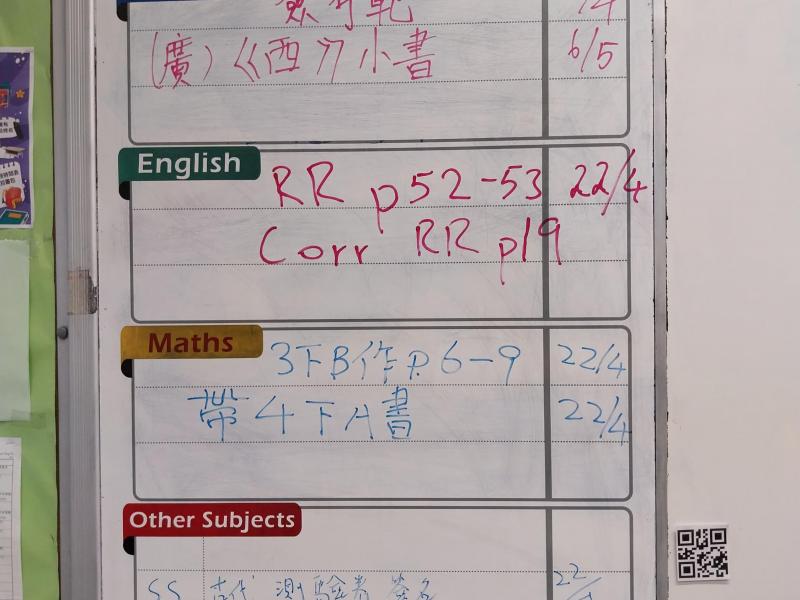 (廣)《西》小書 6/5
English
RR p52-53 22/4
Corr RR p19
Maths
3下B作P.6-9 22/4
帶4下A書 22/4
Other Subjects
SS 古代 測驗卷 簽名 22/